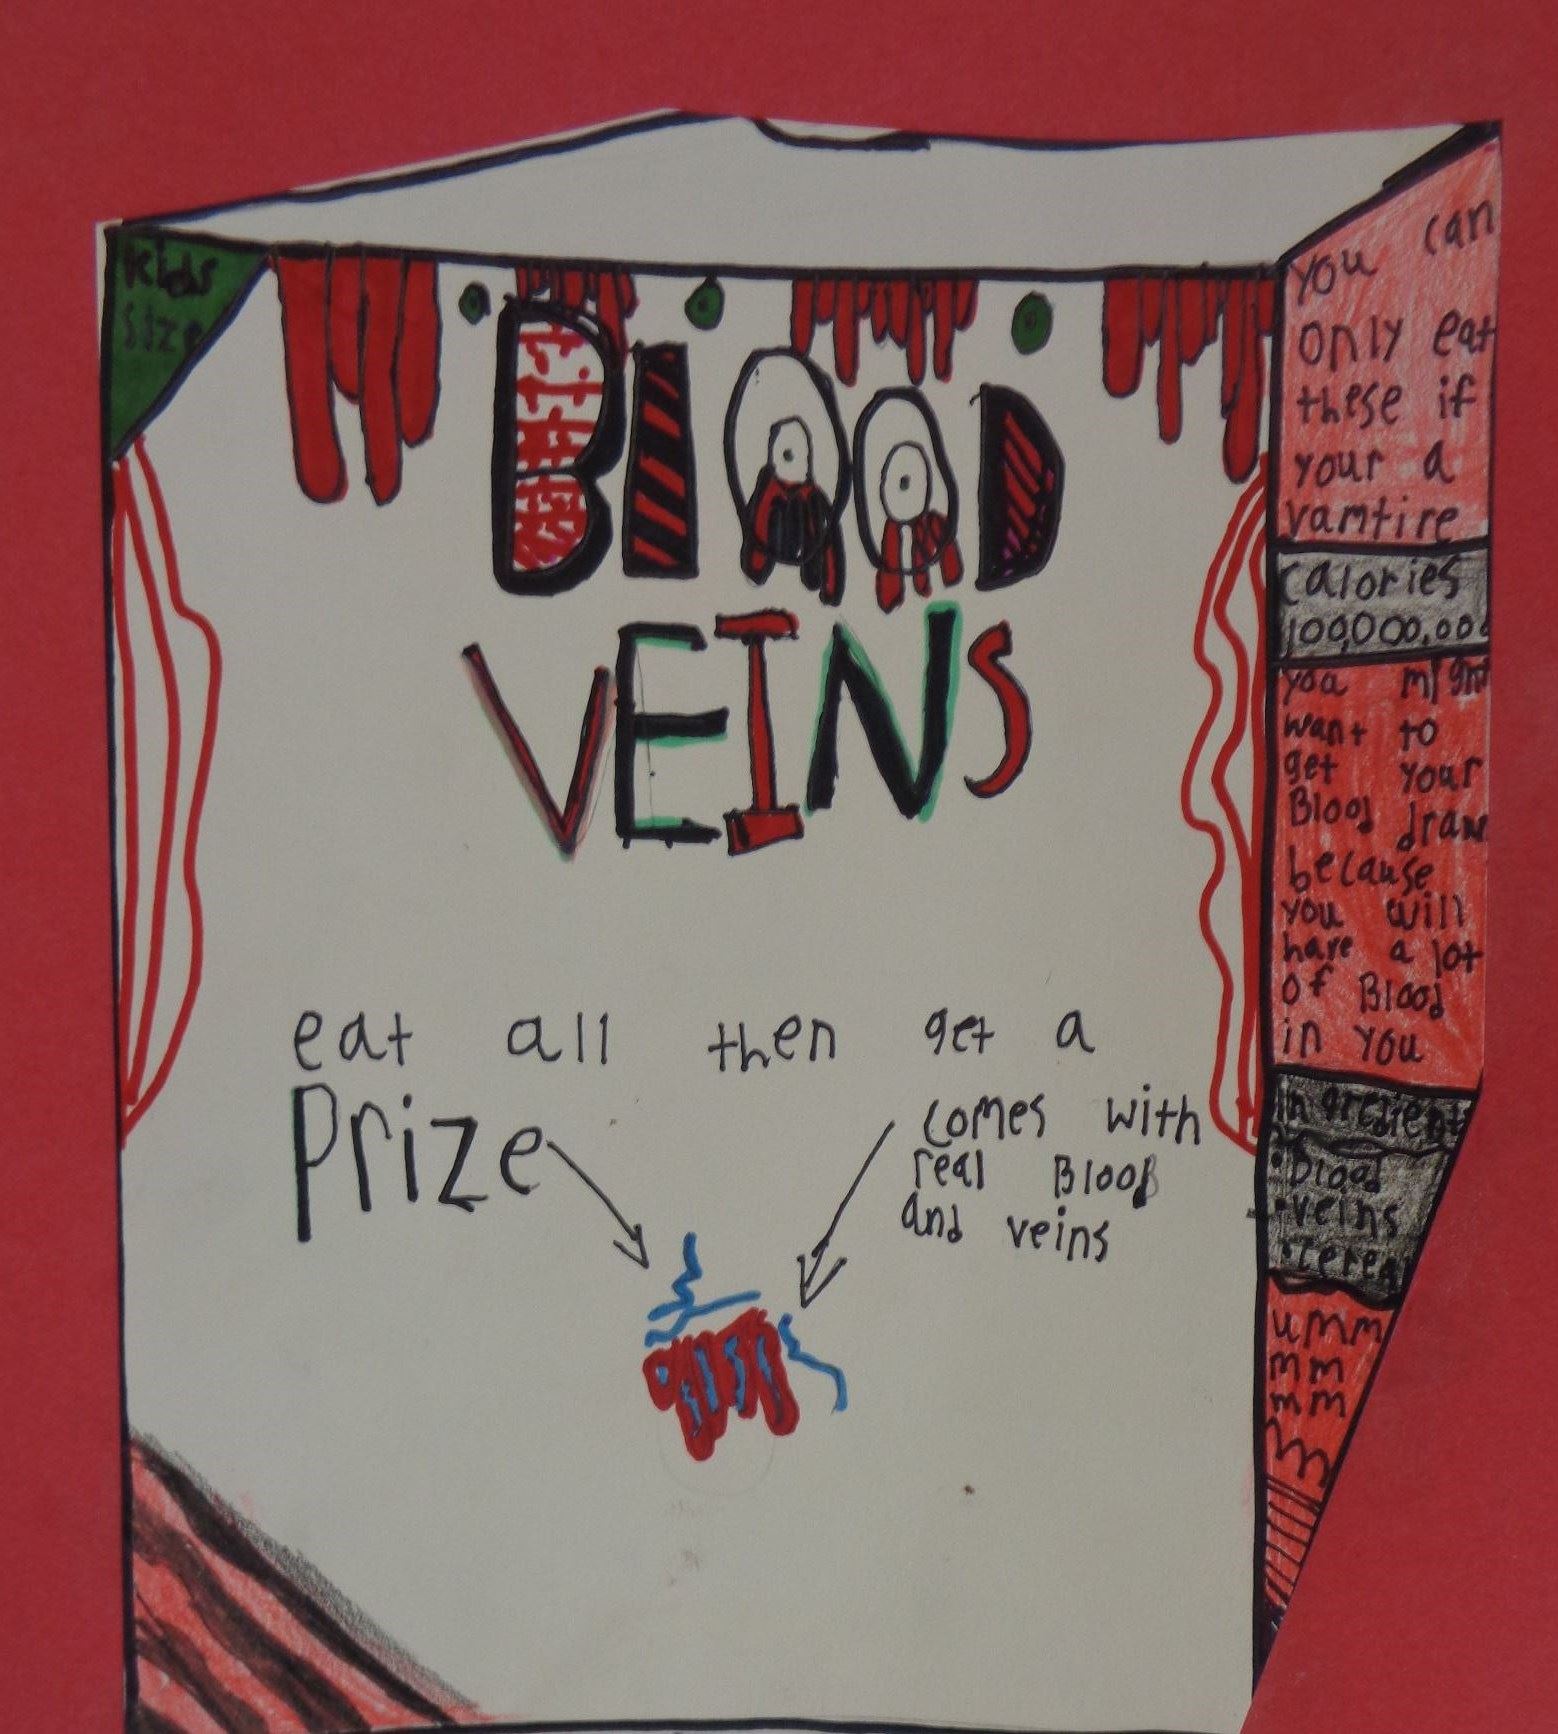 Kids
Size
BLOOD
VEINS
eat all then get a
Prize
comes with
real Blood
and veins
you can
only eat
these if
your a
vamtire
Calories
100,000,000
you might
want to
get your
Blood draw
because
you will
have a lot
of Blood
in you
Ingredient
• Blood
• veins
• cerea
umm
mm
mm
m